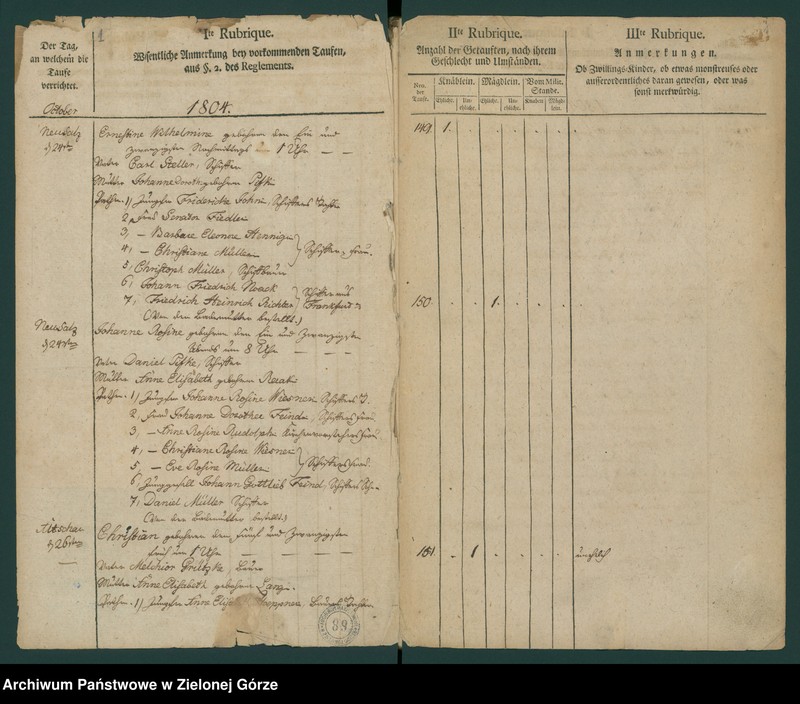 1
Der Tag,
an welchem die
Taufe
verrichtet.
October
Iste Rubrique.
Wesentliche Anmerkung bey vorkommenden Taufen,
aus §. 2. des Reglements.
1804.
Neusalz
d 24ten
Ernestine Wilhelmine gebohren den Ein und
zwanzigsten Nachmittags um 1 Uhr — —
Vater Carl Steller, Schiffer
Mutter Johanne Doroth gebohrne
Pathen. 1, Jungfer Friedericke John, Schiffers
2, Frau Senator Fiedler
3, — Barbare Eleonore Hennigin
4, — Christiane Müllern Schiffer, Frau.
5, Christoph Müller, Schiffbauer
6, Johann Friedrich Noack
7, Friedrich Heinrich Richter
Schiffer aus
Frankfurt
(Von der Bademutter bestellt.)
Neusalz
d 24ten
Johanne Rosine gebohren den Ein und Zwanzigsten
Abends um 8 Uhr — — —
Vater Daniel Schiffer
Mutter Anne Elisabeth gebohrne
Pathen. 1, Jungfer Johanne Rosine Wiesner Schiffers T.
2, Frau Johanne Dorothee Feind, Schiffers Frau
3, — Anne Rosine Rudolph Kirchenvorstehers Frau
4, — Christiane Rosine Wiesner
5, — Eve Rosine Müllern Schiffers Frau.
6, Junggesell Johann Gottlieb Feind, Schiffers
7, Daniel Müller Schiffer
(Von der Bademutter bestellt.)
d 26ten
Christian gebohren den Fünf und Zwanzigsten
früh um 1 Uhr — — — —
Vater Melchior
Mutter Anne Elisabeth gebohrne
Pathen. 1, Jungfer Anne
89
IIte Rubrique.
Anzahl der Getauften, nach ihrem
Geschlecht und Umständen.
Nro.
der
Taufe.
Knäblein.
Mägdlein.
Vom Milit.
Stande.
Eheliche.
Un-
eheliche.
Eheliche.
Un-
eheliche.
Knaben
Mägde-
lein.
IIIte Rubrique.
Anmerkungen.
Ob Zwillings-Kinder, ob etwas monstreuses oder
ausserordentliches daran gewesen, oder was
sonst merkwürdig.
149. 1.
150. 1.
151. 1 unehelich
Archiwum Państwowe w Zielonej Górze